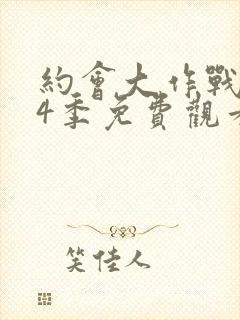 約會大作戰
4季免費觀
笑佳人